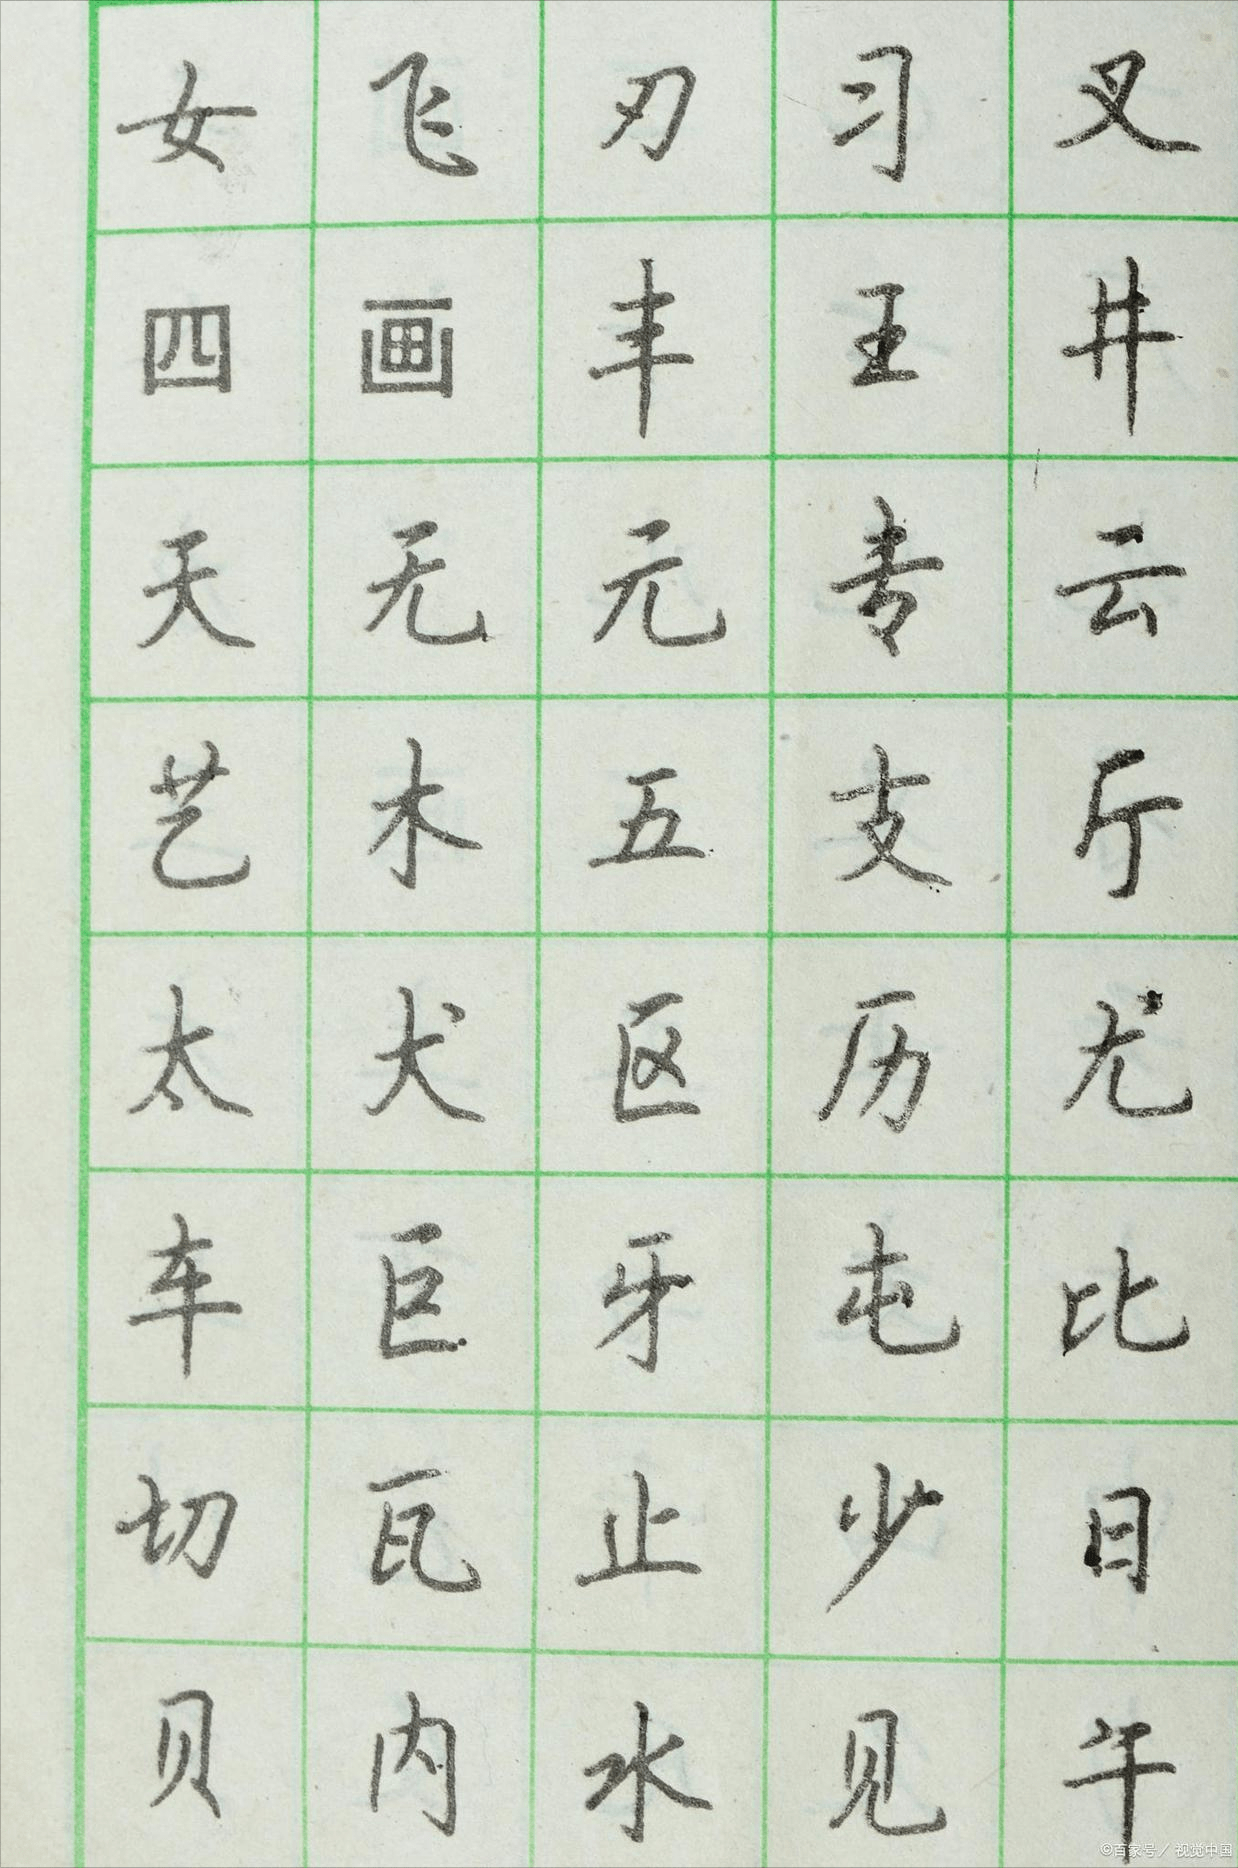 女 飞 刃 习 叉
四 画 丰 王 井
天 无 元 专 云
艺 木 五 支 斤
太 犬 区 历 尤
车 巨 牙 屯 比
切 瓦 止 少 日
贝 内 水 见 午
©百家号/视觉中国